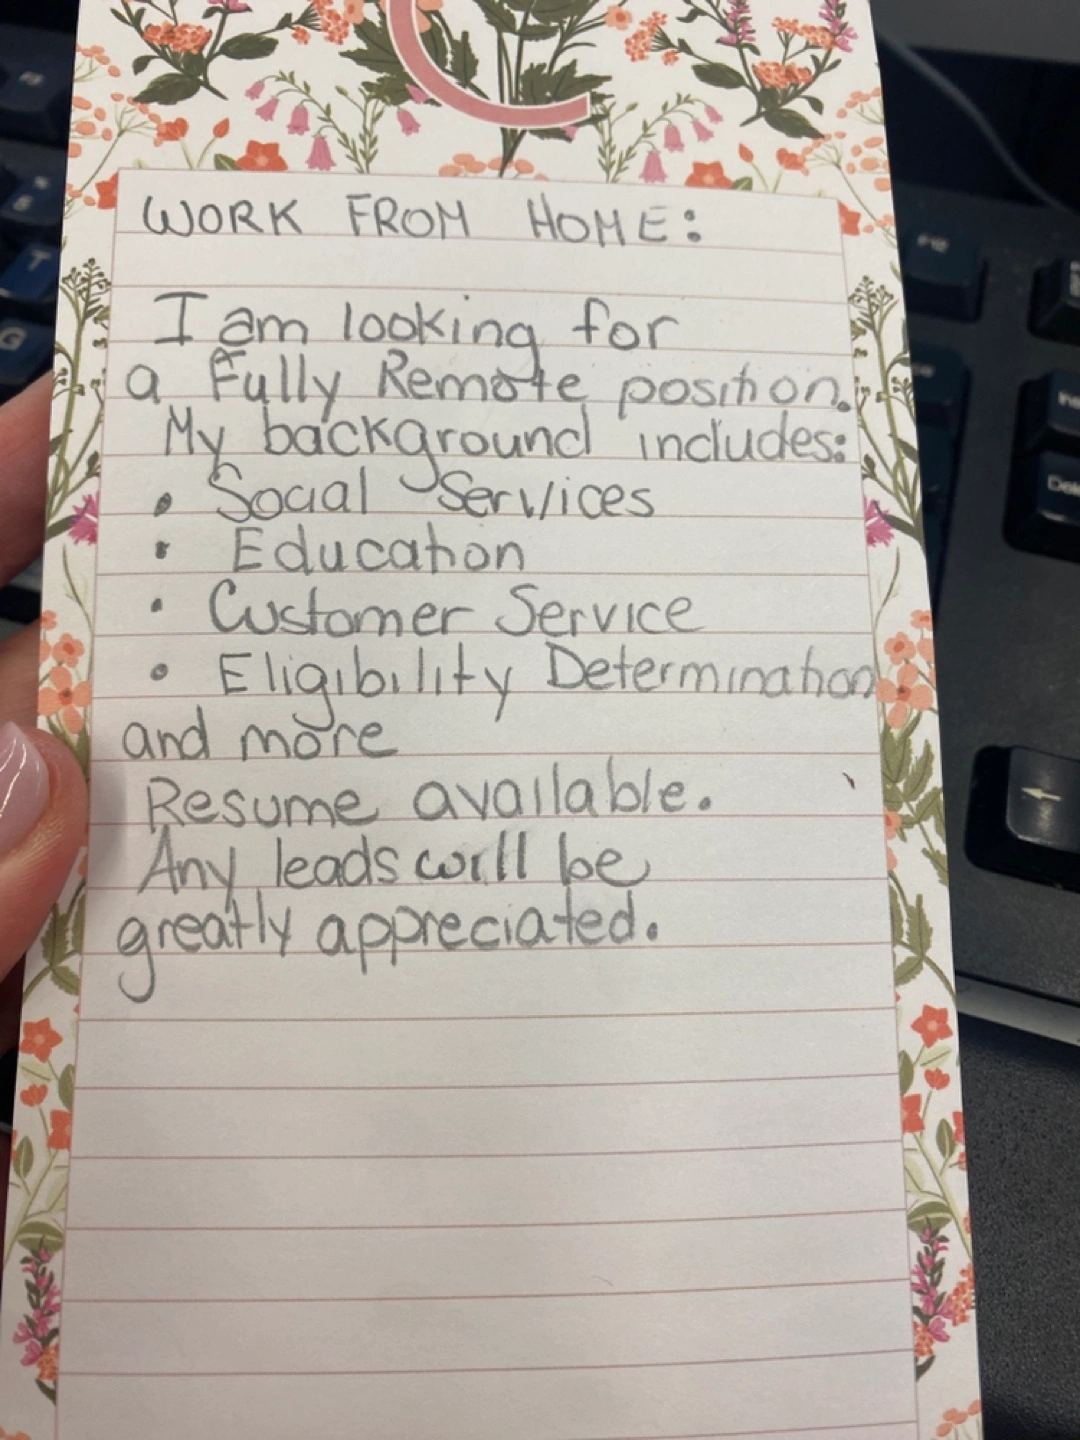 WORK FROM HOME:
I am looking for
a Fully Remote position.
My background includes:
• Social Services
• Education
• Customer Service
• Eligibility Determination
and more
Resume available.
Any leads will be
greatly appreciated.